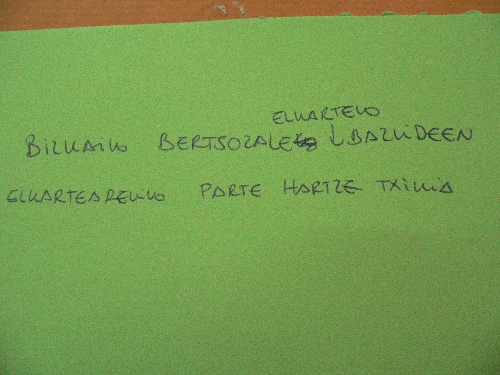 ELKARTEKO
BIZKAIKO BERTSOZALE BAZKIDEEN
ELKARTEAREKIKO PARTE HARTZE TXIKIA